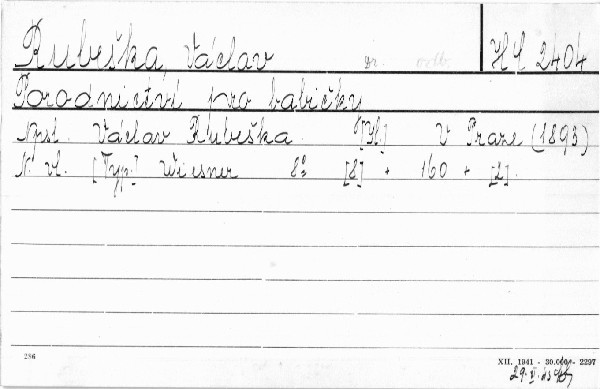 Rubeška Václav Dr. odb. HH 2404
Porodnictví pro babičky
Npsl. Václav Rubeška [Pl.] V Praze (1893)
N. vl. [Typ.] Wiesner 8° [8] + 160 + [2].
286
XII. 1941 - 30.000 - 2297